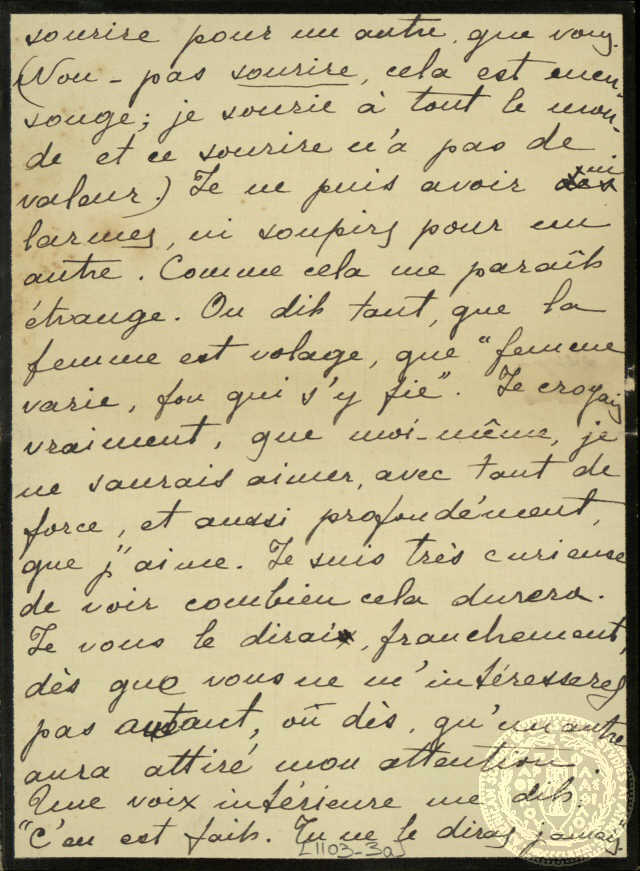 sourire pour un autre, que vous.
(Non – pas sourire, cela est men-
songe; je sourie à tout le mon-
de et ce sourire n'a pas de
valeur.) Je ne puis avoir ni
larmes, ni soupirs pour un
autre. Comme cela me paraît
étrange. On dit tant, que la
femme est volage, que "femme
varie, fou qui s'y fie". Je croyais
vraiment, que moi-même, je
ne saurais aimer, avec tant de
force, et aussi profondément,
que j'aime. Je suis très curieuse
de voir combien cela durera.
Je vous le dirai, franchement,
dès que vous ne m'intéresserez
pas autant, où dès, qu'un autre
aura attiré mon attention.
Une voix intérieure me dit:
"C'en est fait. Tu ne le diras jamais".
[1103-3a]